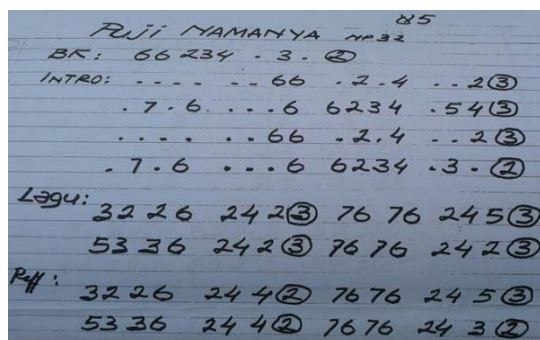 85
PUJI NAMANYA MP32
BK: 66 234 . 3 . ②
INTRO: .... ..66 .2.4 ..2③
.7.6 ...6 6234 .54③
.... ..66 .2.4 ..2③
.7.6 ...6 6234 .3.②
Lagu: 3226 242③ 7676 245③
5336 242③ 7676 242③
Reff: 3226 244② 7676 245③
5336 244② 7676 243②